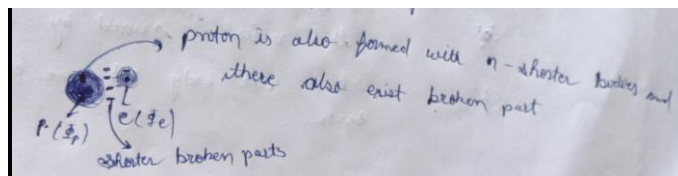 proton is also formed with n-shorter bodies and
there also exist broken part
P-(Φp) e(Φe)
shorter broken parts